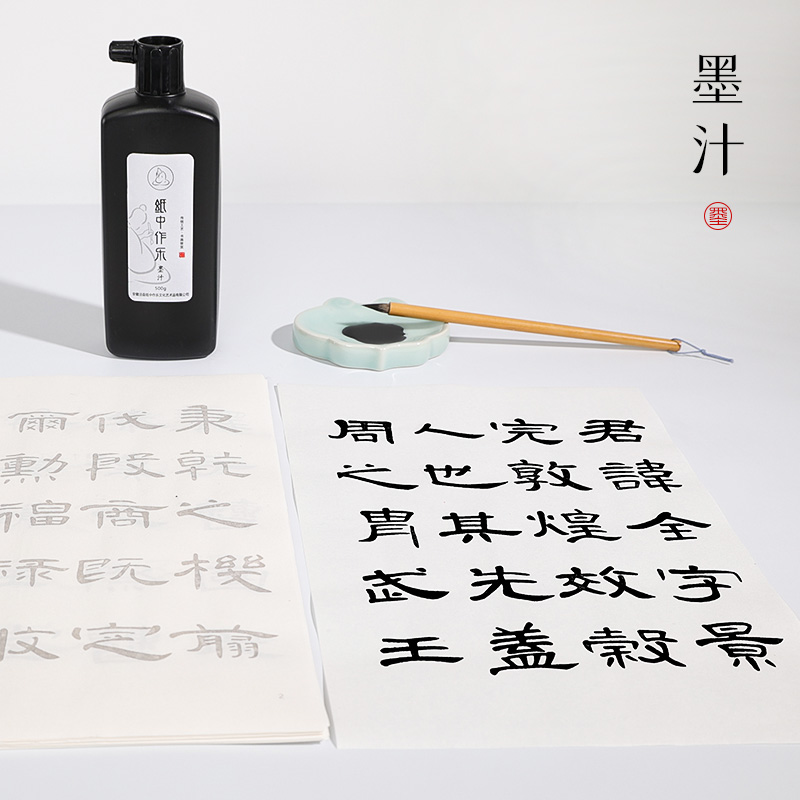 墨汁
墨
紙中作乐
墨汁
500g
君諱全字景
完敦煌效穀
人也其先蓋
周之冑武王
秉乾之機翦
伐殷商既定
爾勲福祿攸